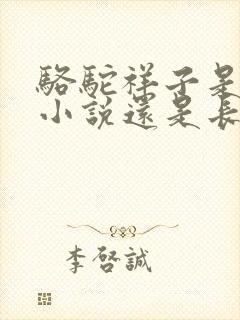 駱駝祥子是
小說還是長
李啓誠